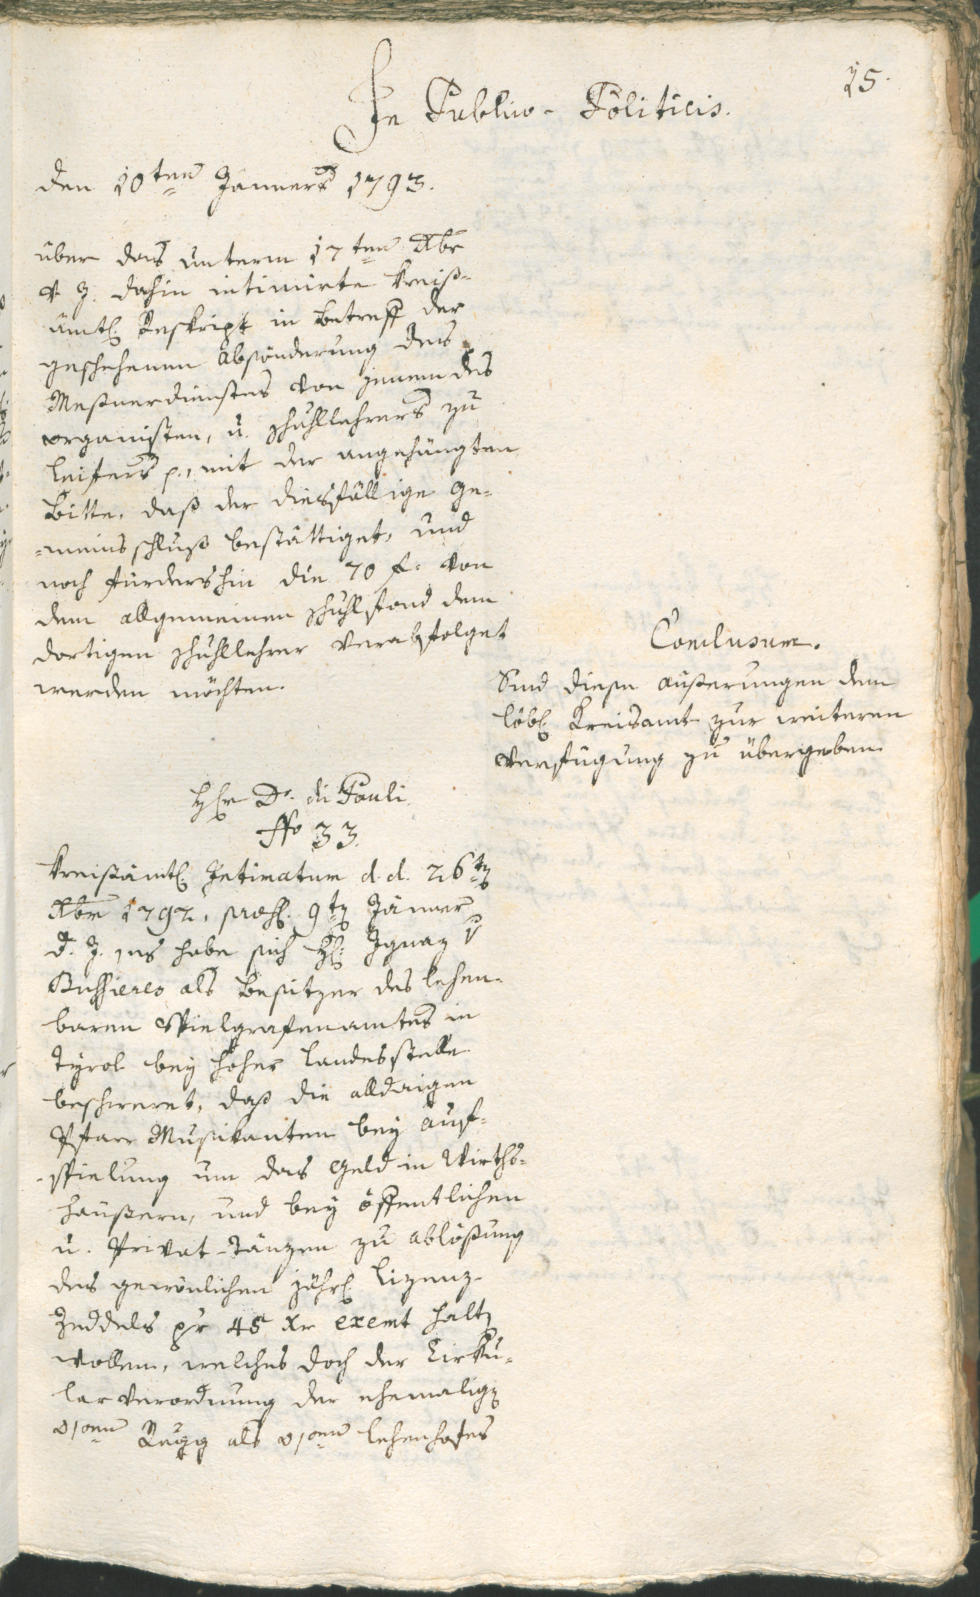 15.
In Publico-Politicis.
den 10ten Janners 1793.
über das unterm 17ten Xbr
v. J. dahin intimirte kreiß-
ämtl. Reskript in betreff der
geschehenen Absönderung des
Meßnerdienstes von jenem des
organisten, u. schullehrers zu
Leifers p., mit der angehängten
bitte, daß der diesfällige Ge-
=meinsschluß bestättiget, und
noch fürdershin die 70 f. von
dem allgemeinen schulfond dem
dortigen schullehrer verabfolget
werden möchten.
Conclusum.
Sind diese äusserungen dem
löbl. Kreisamt zur weiteren
verfügung zu übergeben.
Hr. Dr. di Pauli
33.
kreisämtl. Intimatum d. d. 26t
Xbr 1792, 9t Jänner
d. J. es habe sich H. Ignaz v
Bussieres als besitzer des lehen-
baren Spielgrafenamtes in
Tyrol bey hoher Landesstelle
beschweret, daß die alldaigen
Pfarr Musikanten bey auf-
-spielung um das Geld in Wirths-
häußern, und bey öffentlichen
u. Privat-Tänzen zu ablößung
des gewönlichen jährl. Lizenz-
Zeddels pr 45 Xr exemt halt
wollen, welches doch der Cirku-
lar verordnung der ehemalig
als lehenhofes